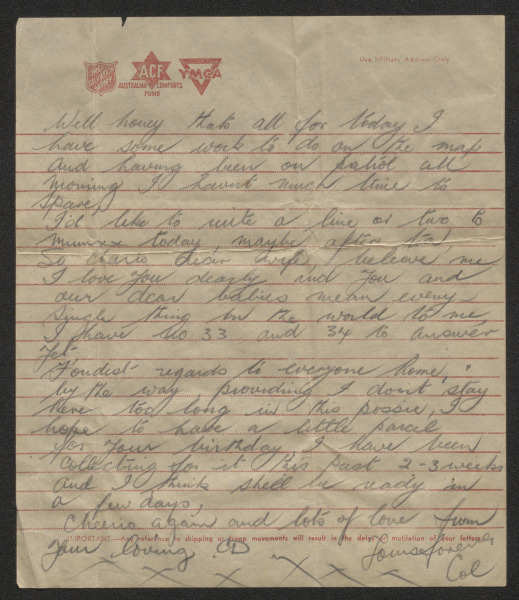 THE SALVATION ARMY
ACF
AUSTRALIAN COMFORTS FUND
YMCA
Use Military Address Only
Well honey thats all for today I
have some work to do on the map
and having been on patrol all
morning I havnt much time to
spare,
I'd like to write a line or two to
Mumxx today, maybe after tea,
So cheerio dear wife, beleave me
I love you dearly and you and
our dear babies mean every
single thing in the world to me,
I have no 33 and 34 to answer
yet.
Fondest regards to everyone home,
by the way providing I don't stay
here too long in this possie, I
hope to have a little parcel
for your birthday, I have been
collecting for it this past 2-3 weeks
and I think shell be ready in
a few days,
Cheerio again and lots of love from
IMPORTANT—Any reference to shipping or troop movements will result in the delay or mutilation of your letters
Your loving
Yours forever
x x x x x x
Col